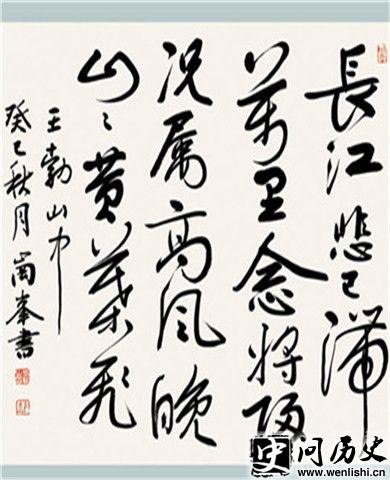 長江悲已滯
萬里念將歸
況属高風晚
山〻黄葉飛
王勃山中
癸巳秋月尚峯書
问历史
www.wenlishi.cn